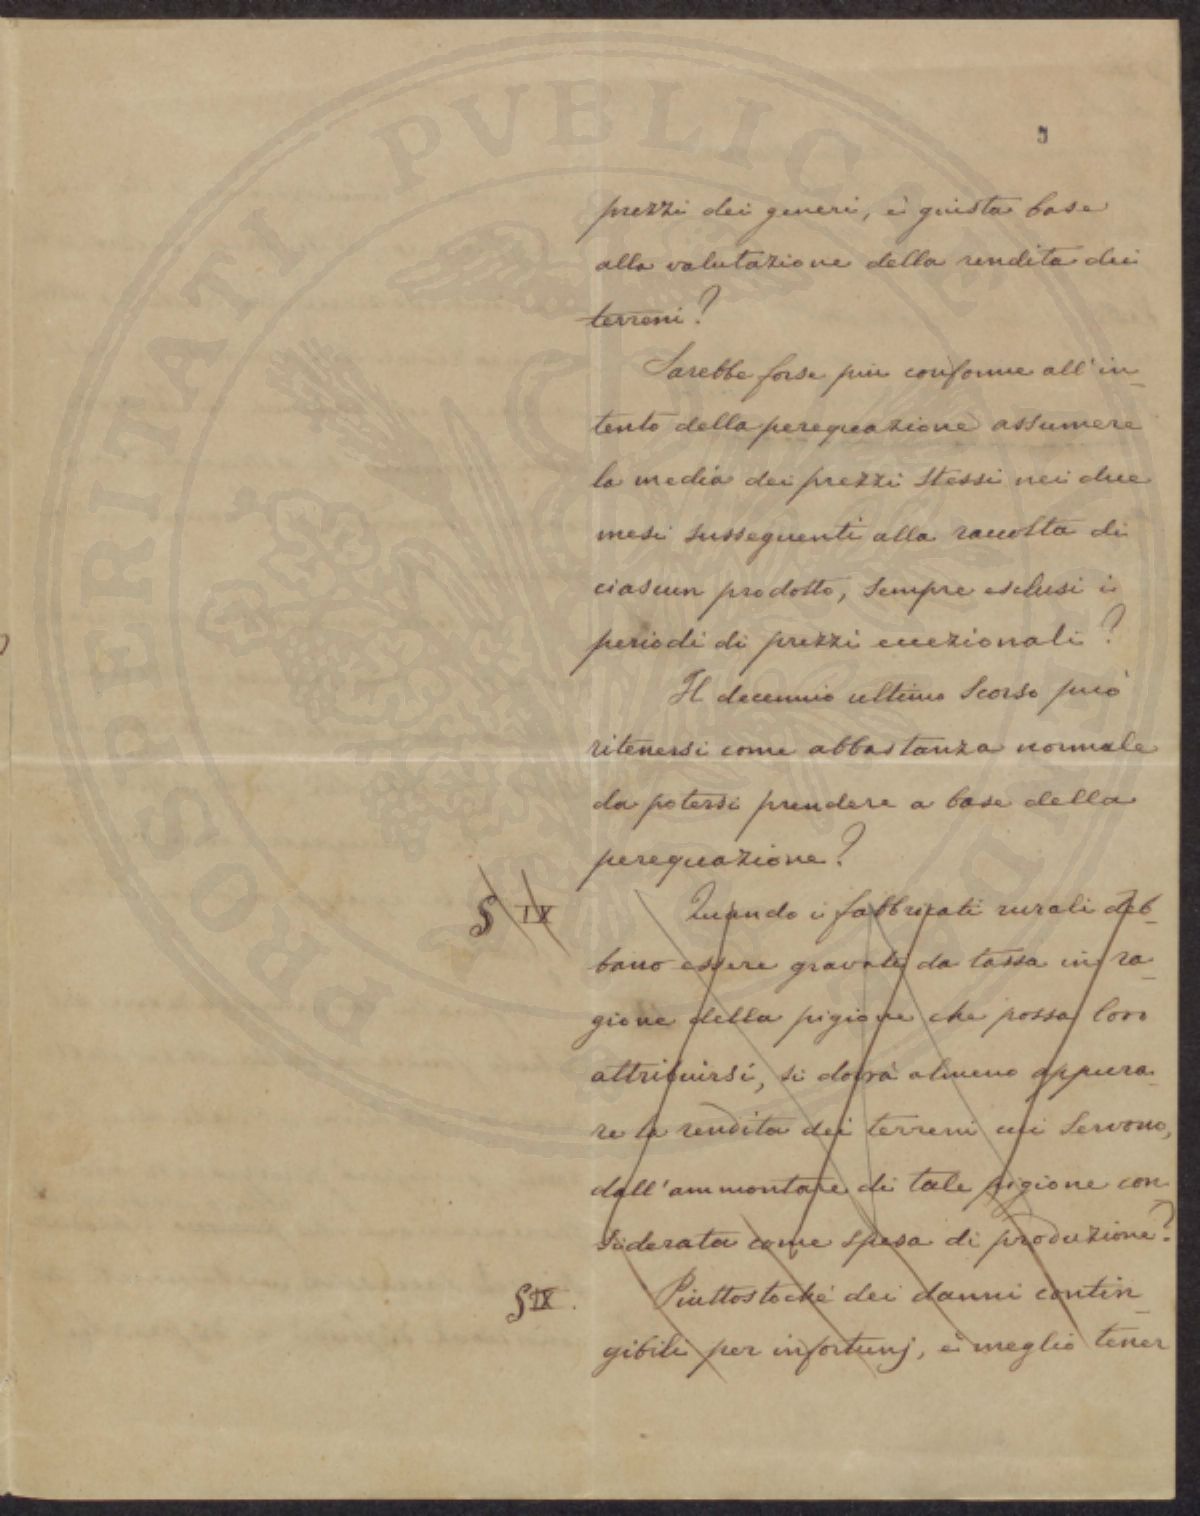 5
prezzi dei generi, è giusta base
alla valutazione della rendita dei
terreni?
Sarebbe forse più conforme all'in-
tento della perequazione assumere
la media dei prezzi stessi nei due
mesi susseguenti alla raccolta di
ciascun prodotto, sempre esclusi i
periodi di prezzi eccezionali?
Il decennio ultimo scorso può
ritenersi come abbastanza normale
da potersi prendere a base della
perequazione?
§ IX
Quando i fabbricati rurali deb-
bano essere gravati da tassa in ra-
gione della pigione che possa loro
attribuirsi, si dovrà almeno appura-
re la rendita dei terreni cui servono,
dall'ammontare di tale pigione con
siderata come spesa di produzione?
§ IX.
Piuttostochè dei danni contin-
gibili per infortunj, è meglio tener
PROSPERITATI PVBLICAE